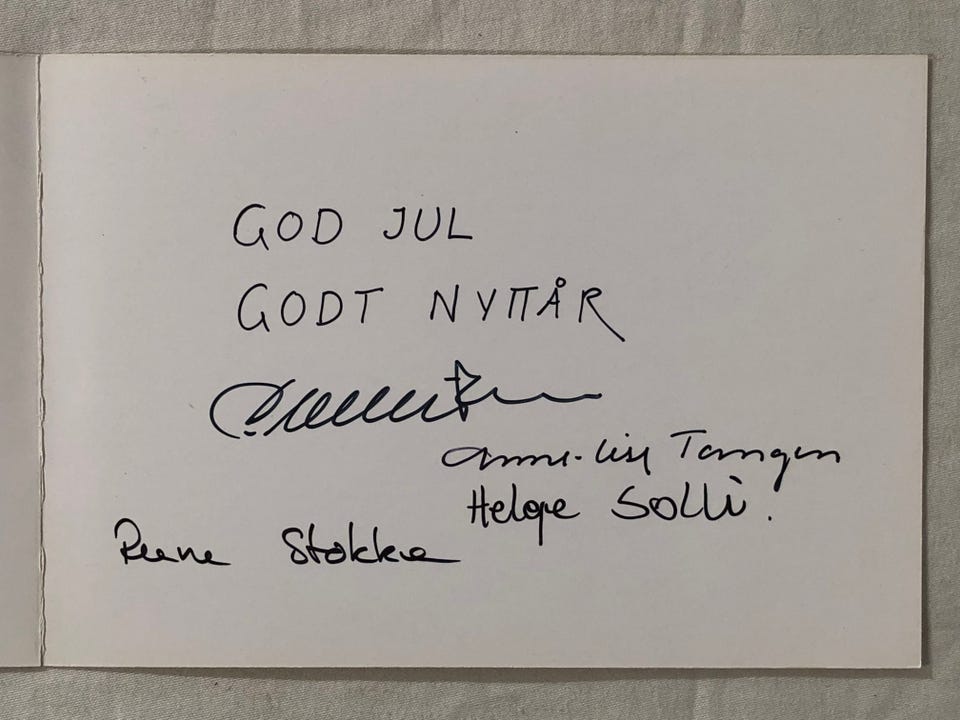 GOD JUL
GODT NYTTÅR
Anne-Lise Tangen
Helge Solli.
Rune Stokke